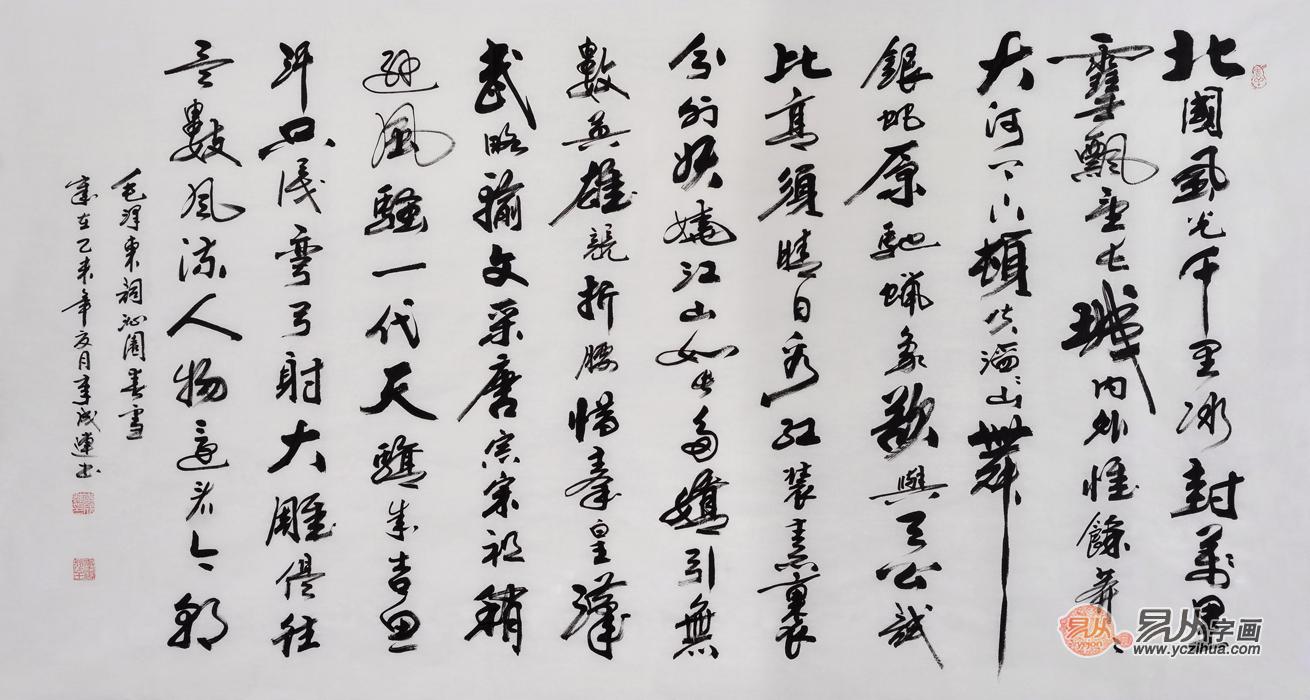 北國風光千里冰封萬里
雪飄望长城内外惟餘莽々
大河上下頓失滔々山舞
銀蛇原馳蠟象欲與天公試
比高須晴日看红裝素裹
分外妖嬈江山如此多嬌引無
數英雄競折腰惜秦皇漢
武略輸文采唐宗宋祖稍
遜風騷一代天驕成吉思
汗只识彎弓射大雕俱往
矣數風流人物還看今朝
毛泽東詞沁園春雪
歲在乙未年夏月李成連书
易从字画
www.yczihua.com